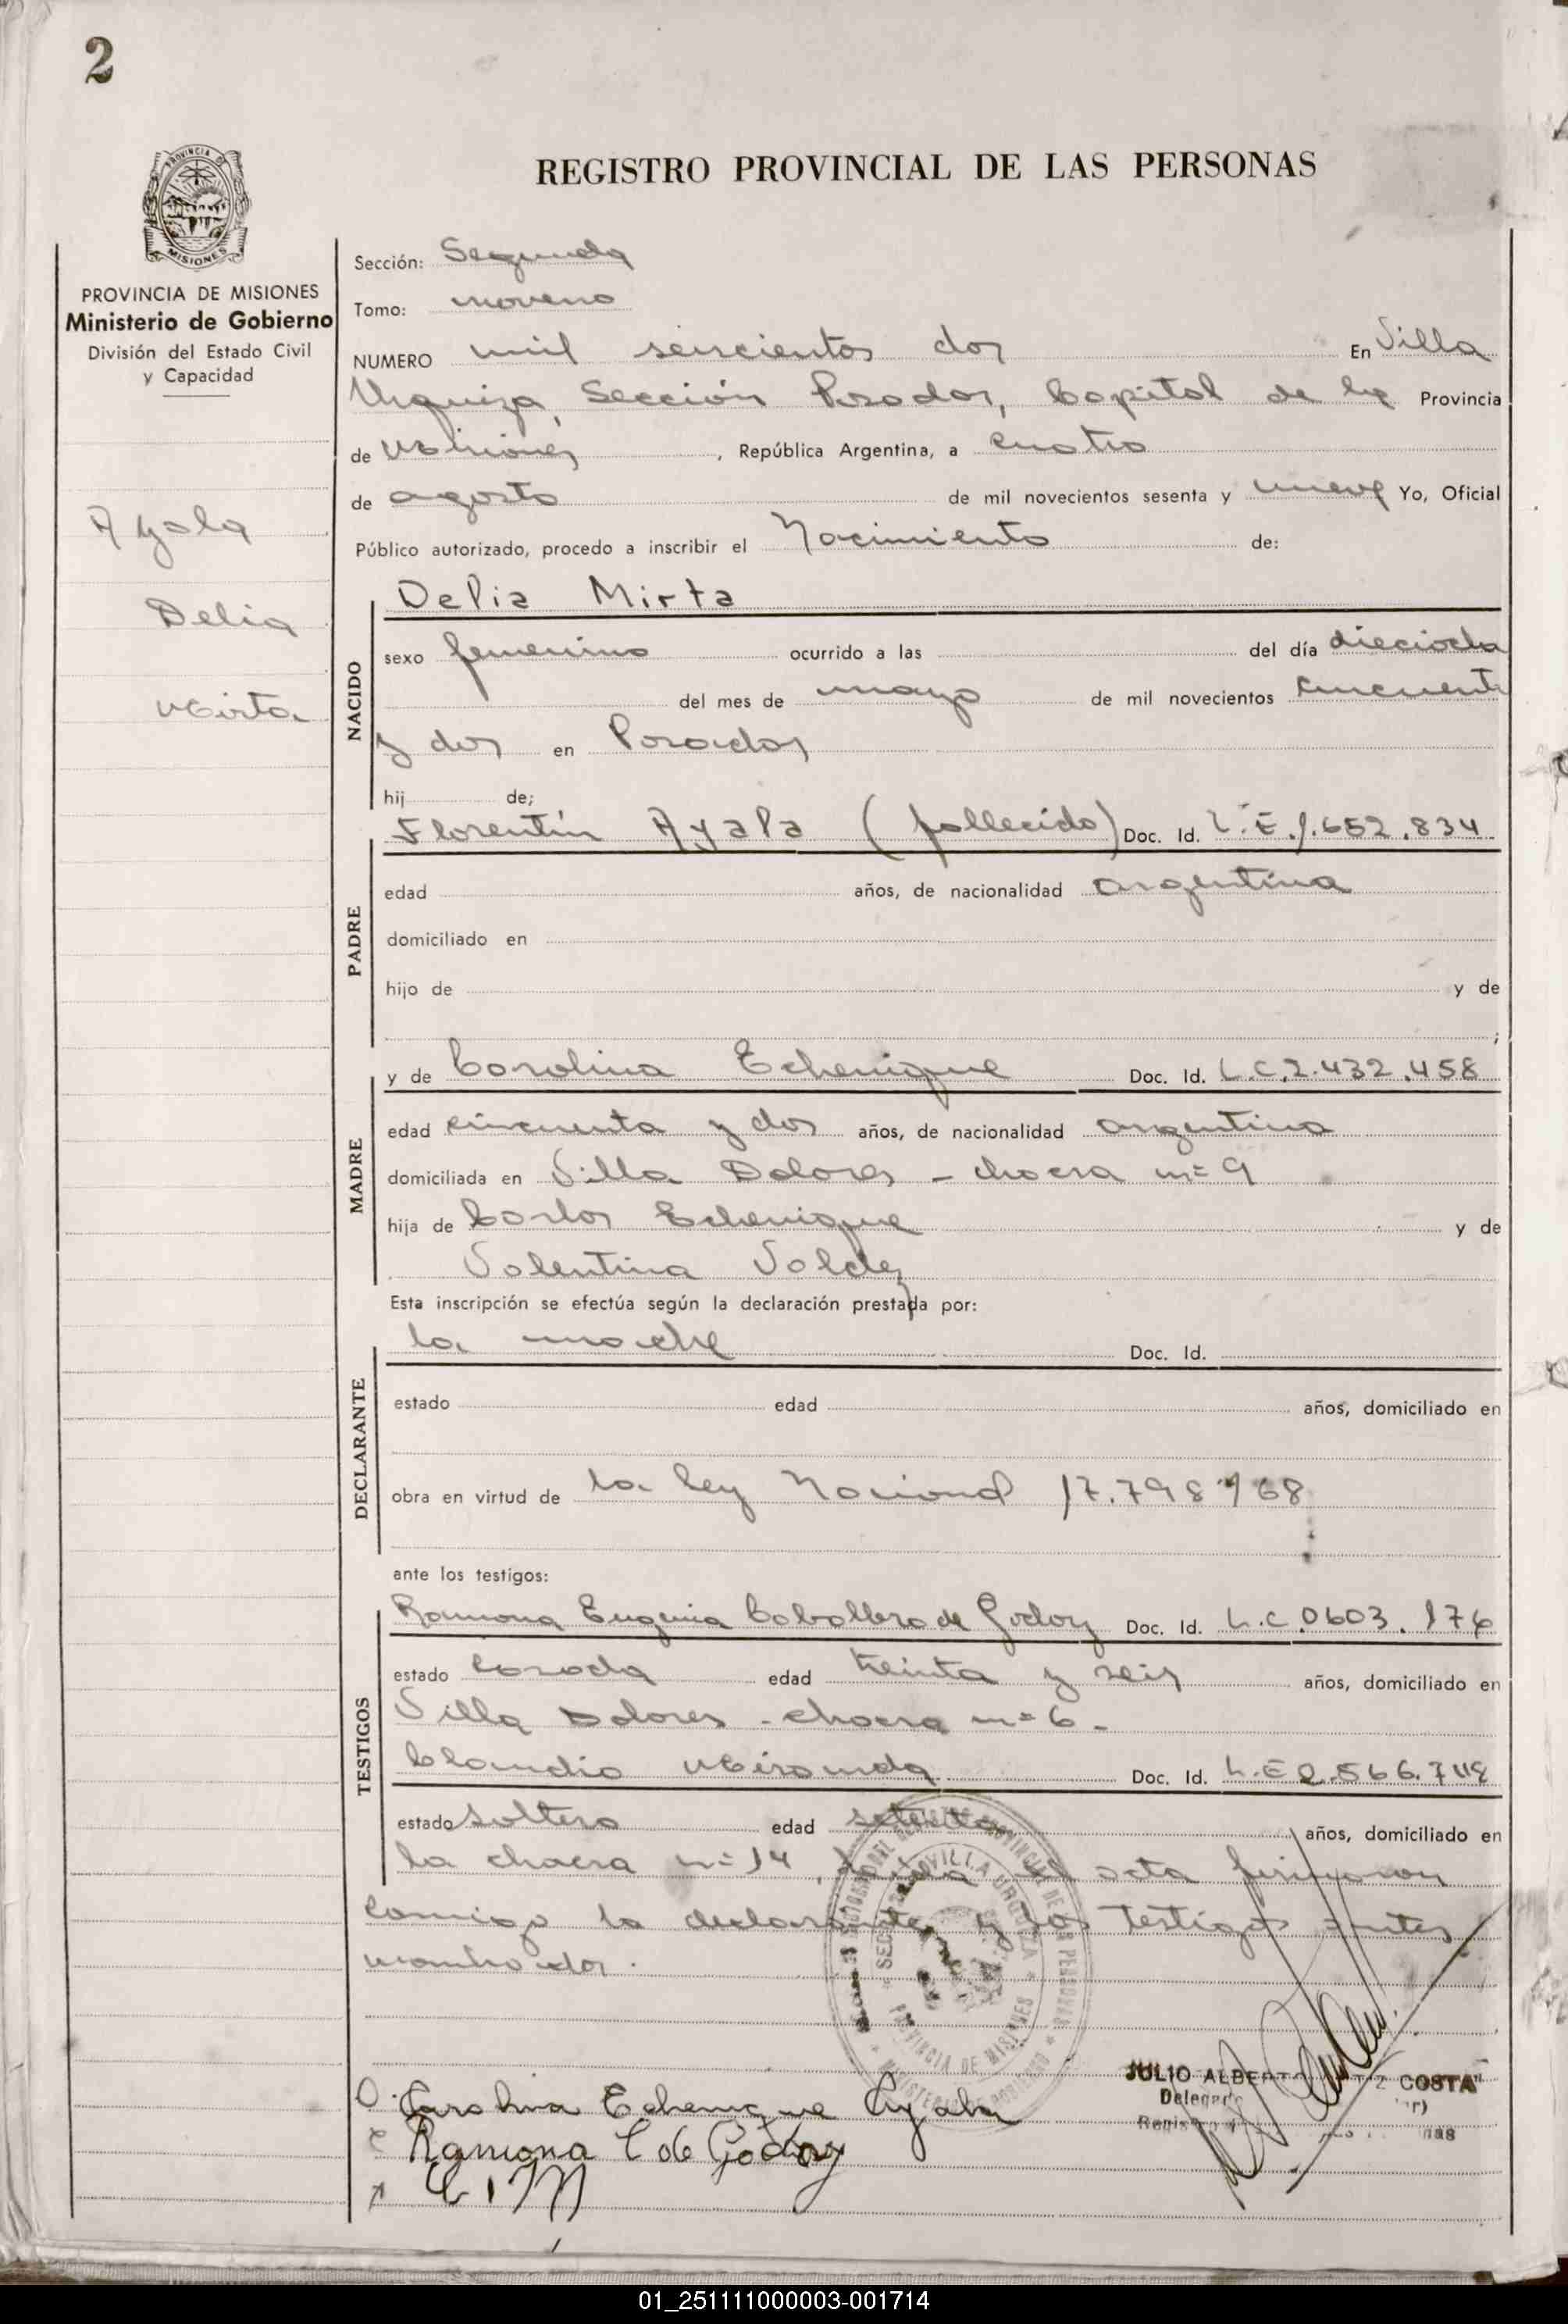 2
PROVINCIA DE
MISIONES
REGISTRO PROVINCIAL DE LAS PERSONAS
PROVINCIA DE MISIONES
Ministerio de Gobierno
División del Estado Civil
y Capacidad
Ayala
Delia
Mirta
Sección: Segunda
Tomo: noveno
NUMERO mil seiscientos dos En Villa
Urquiza, Sección Posadas, Capital de la Provincia
de Misiones, República Argentina, a cuatro
de agosto de mil novecientos sesenta y nueve Yo, Oficial
Público autorizado, procedo a inscribir el Nacimiento de:
NACIDO
Delia Mirta
sexo femenino ocurrido a las del día dieciocho
del mes de mayo de mil novecientos cincuenta
y dos en Posadas
hij de;
PADRE
Florentín Ayala (fallecido) Doc. Id. L.E.1.652.834
edad años, de nacionalidad argentina
domiciliado en
hijo de y de
;
MADRE
y de Carolina Echenique Doc. Id. L.C.2.432.458
edad cincuenta y dos años, de nacionalidad argentina
domiciliada en Villa Dolores - chacra nº 9
hija de Carlos Echenique y de
Valentina Valdez
Esta inscripción se efectúa según la declaración prestada por:
DECLARANTE
la madre Doc. Id.
estado edad años, domiciliado en
obra en virtud de la ley Nacional 17.798/68
ante los testigos:
TESTIGOS
Ramona Eugenia Caballero de Godoy Doc. Id. L.C.0603.176
estado casada edad treinta y seis años, domiciliado en
Villa Dolores - chacra nº 6 -
Claudio Miranda Doc. Id. L.E
estado soltero edad setenta años, domiciliado en
la chacra nº 14 el acta firmaron
conmigo la declarante y los testigos antes
nombrados.
VILLA URQUIZA
PROVINCIA DE MISIONES
JULIO ALBERTO COSTA
Delegado
Carolina Echenique Ayala
Ramona C de Godoy
C.M
01_251111000003-001714